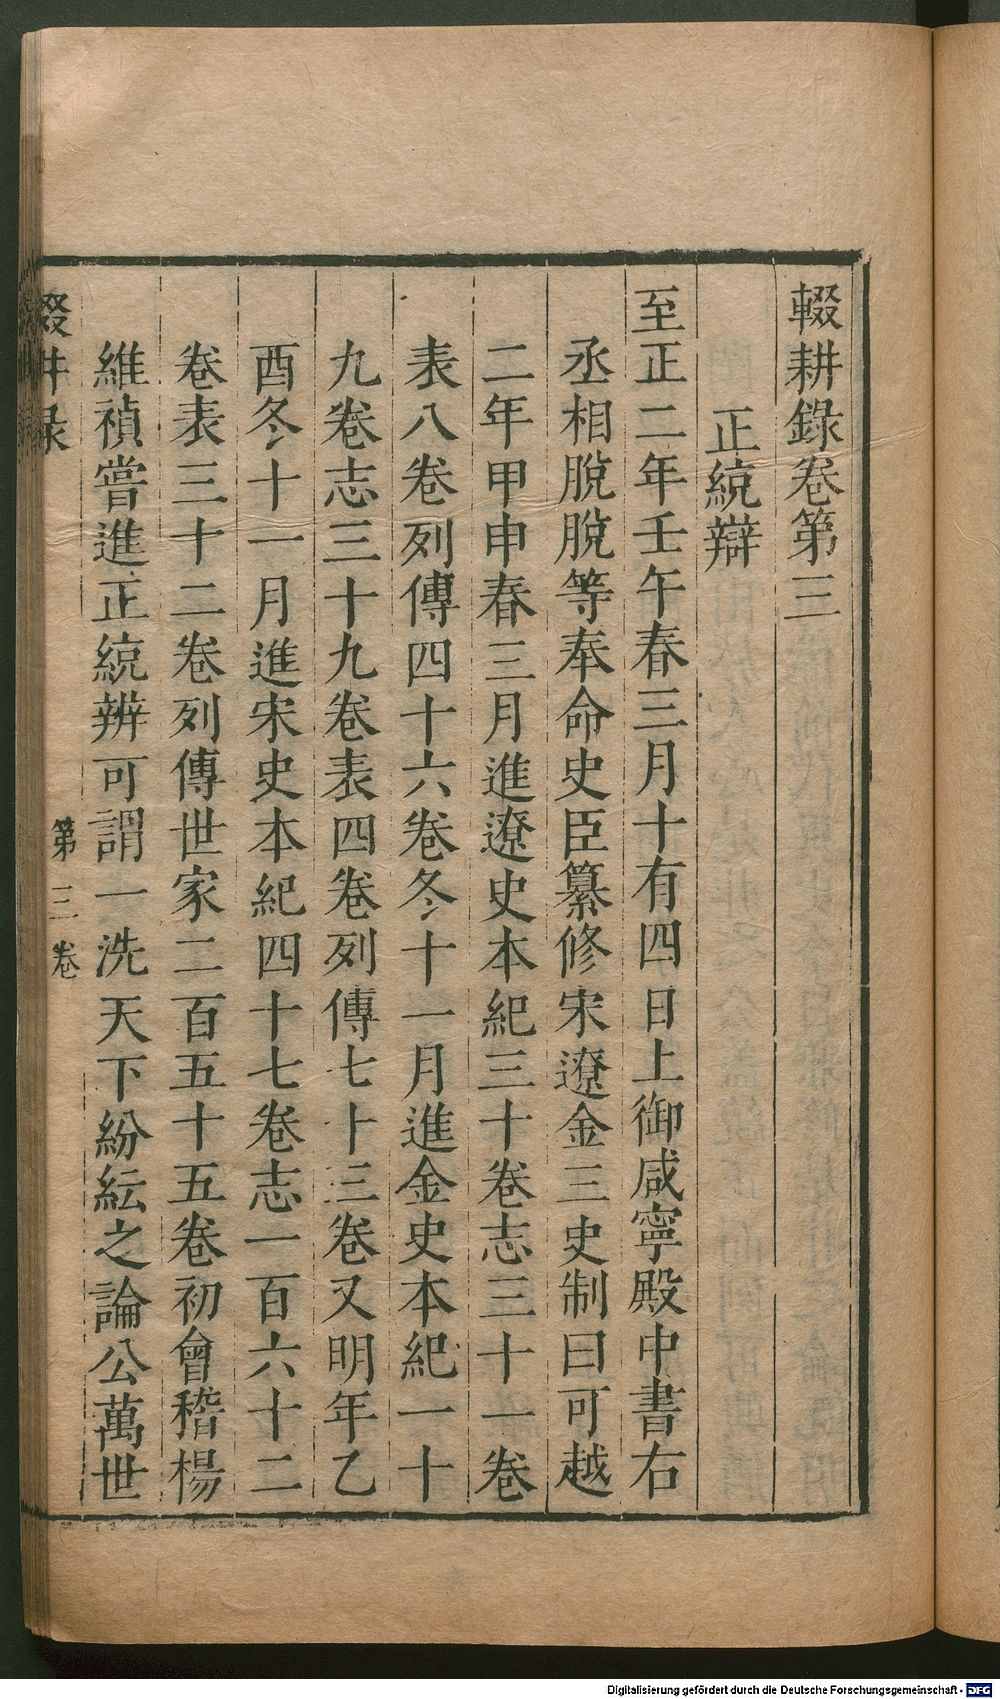 輟耕錄卷第三
正統辯
至正二年壬午春三月十有四日上御咸寧殿中書右
丞相脫脫等奉命史臣纂修宋遼金三史制曰可越
二年甲申春三月進遼史本紀三十卷志三十一卷
表八卷列傳四十六卷冬十一月進金史本紀一十
九卷志三十九卷表四卷列傳七十三卷又明年乙
酉冬十一月進宋史本紀四十七卷志一百六十二
卷表三十二卷列傳世家二百五十五卷初會稽楊
維禎嘗進正統辨可謂一洗天下紛紜之論公萬世
輟耕錄 第三卷
Digitalisierung gefördert durch die Deutsche Forschungsgemeinschaft - DFG